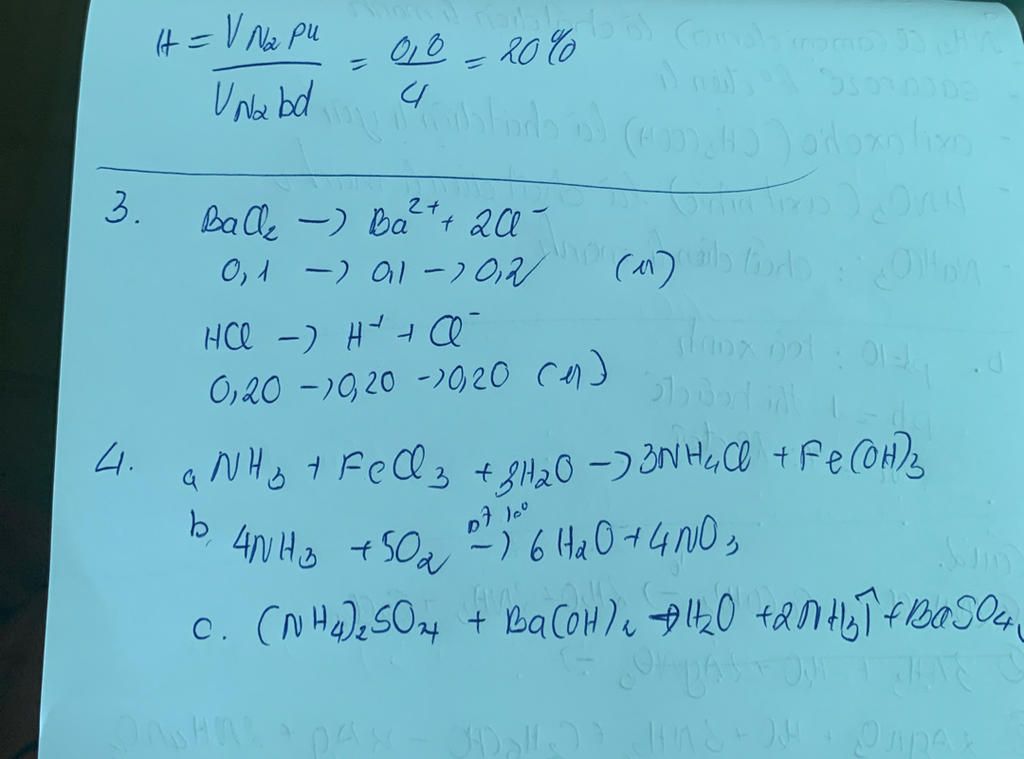 H = V N2 pu / V N2 bd = 0,8 / 4 = 20%
3. BaCl2 → Ba2+ + 2Cl-
0,1 → 0,1 → 0,2 (M)
HCl → H+ + Cl-
0,20 → 0,20 → 0,20 (M)
4. a NH3 + FeCl3 + 3H2O → 3NH4Cl + Fe(OH)3
b, 4NH3 + 5O2 → 6H2O + 4NO,
c. (NH4)2SO4 + Ba(OH)2 → H2O + 2NH3↑ + BaSO4